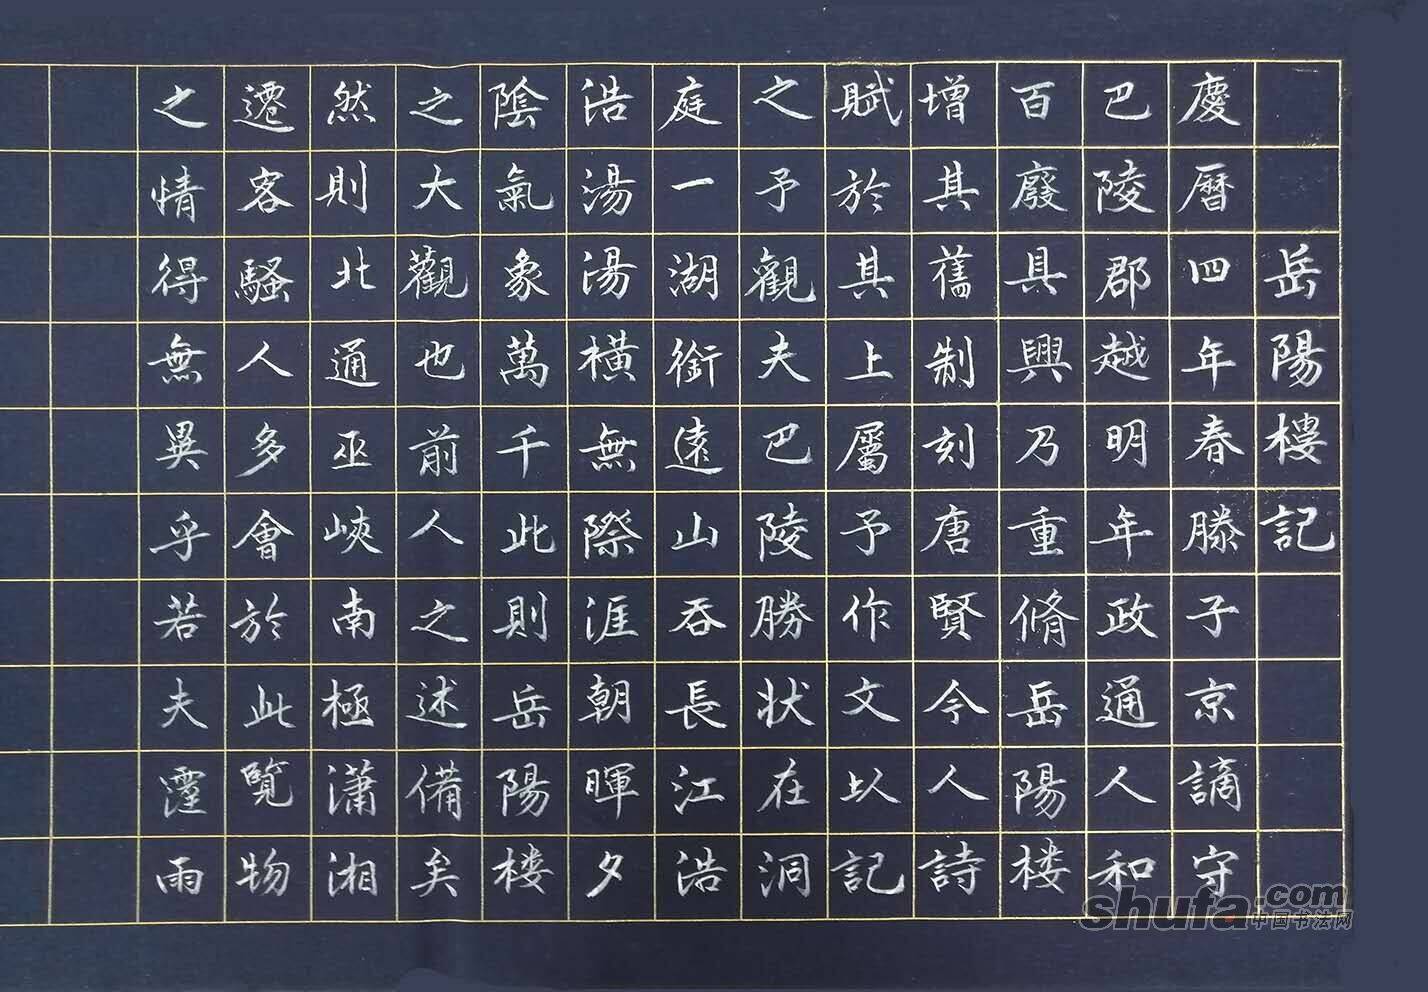 岳陽樓記
慶曆四年春滕子京謫守
巴陵郡越明年政通人和
百廢具興乃重脩岳陽楼
增其舊制刻唐賢今人詩
賦於其上屬予作文以記
之予觀夫巴陵勝狀在洞
庭一湖銜遠山吞長江浩
浩湯湯橫無際涯朝暉夕
陰氣象萬千此則岳陽楼
之大觀也前人之述備矣
然則北通巫峽南極瀟湘
遷客騷人多會於此覽物
之情得無異乎若夫霪雨
shufa.com
中国书法网